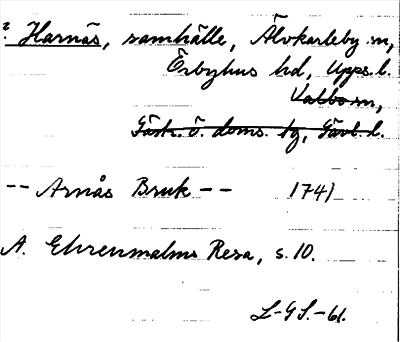 ? Harnäs, samhälle, Älvkarleby sn,
Örbyhus hd, Upps. l.
Valbo sn,
Gästr. ö. doms. tg, Gävl. l.
-- Arnäs Bruk -- 1741
A. Ehrenmalms Resa, s. 10.
L-GS.-61.